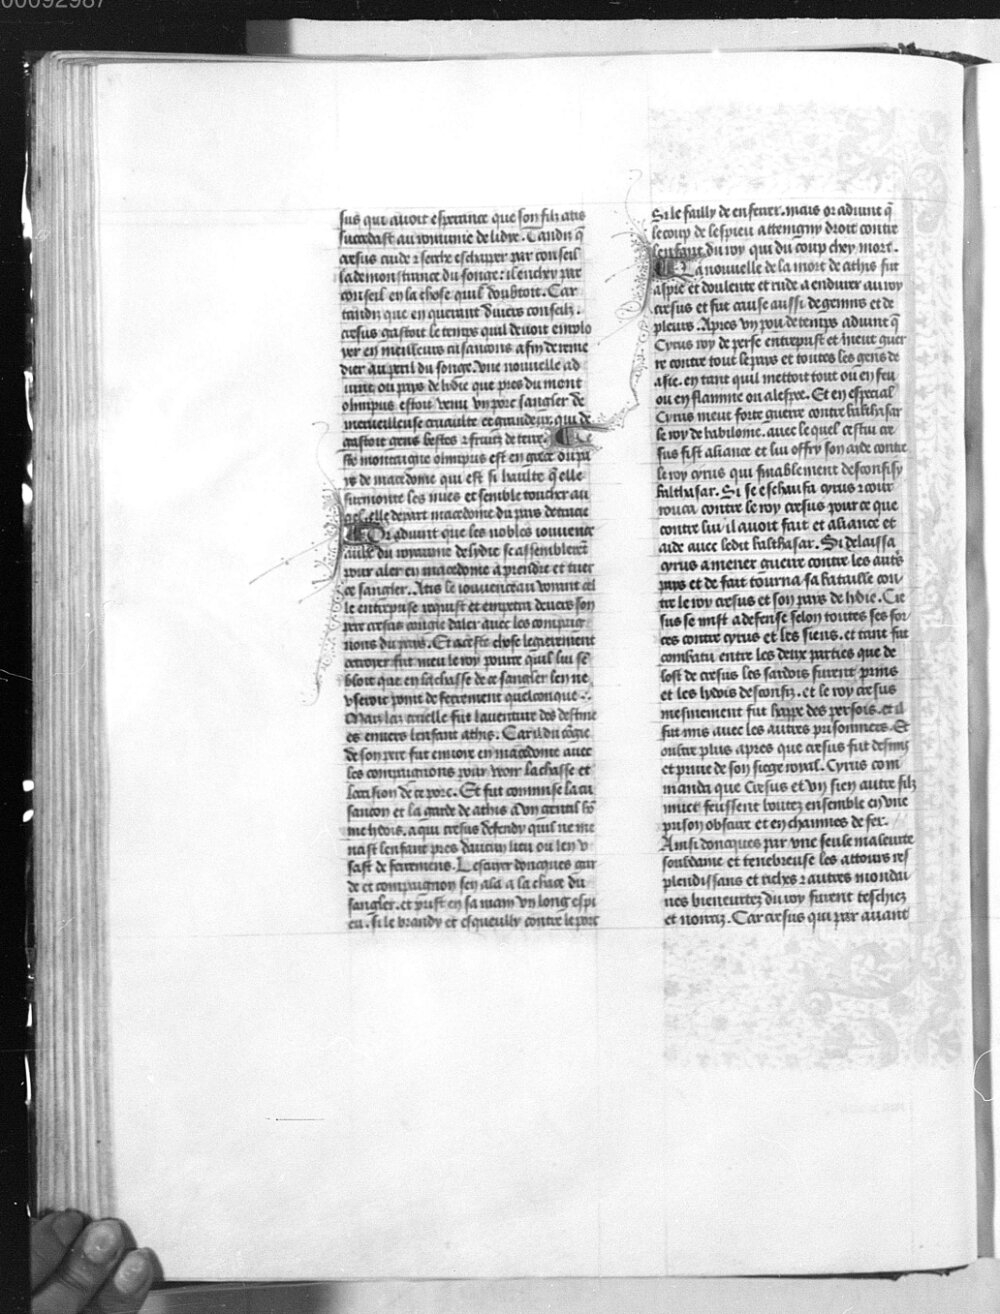 00092987
sus qui auoit esperance que son filz atis
succedast au royaume de lidye. Tandis q̄
cresus cuide ⁊ serche eschaper par conseil
la demonstrance du songe: il enchey par
conseil en la chose quil doubtoit. Car
tandis que en querant diuers conseilz.
cresus gastoit le temps quil deuoit emplo
yer en meilleurs cusancons afin de reme
dier au peril du songe. vne nouuelle ad
uint ou pays de lydie que pres du mont
olimpus estoit venu vn porc sangler de
merueilleuse cruaulte et grandeur, qui de
gastoit gens bestes ⁊ fruiz de terre. Ce
ste montaigne olimpus est en grece ou pa
ys de macedome qui est si haulte q̄ elle
surmonte les nues et semble toucher au
ciel. elle depart macedome du pays de tracie
Or aduint que les nobles iouuence
aulx du royaume de lydie se assemblerēt
pour aler en macedome a prendre et tuer
ce sangler. Atis le iouuenceau voyant cel
le entreprise requist et empetra deuers son
pere cresus congie daler auec les compaig
nons du pays. Et a ceste chose legierement
ottroyer fut meu le roy pource quil lui sē
bloit que en la chasse de ce sangler len ne
vseroit point de ferrement quelconque.
Mais la cruelle fut lauenture des destine
es enuers lenfant athis. Car il du cōgie
de son pere fut enuoye en macedome auec
les compaignons pour veoir la chasse et
loccision de ce porc. Et fut commise la cu
sancon et la garde de athis a vn gentil hō
me lydois, a qui cresus defendy quil ne me
nast lenfant pres daucun lieu ou len v
sast de ferremens. L escuier doncques gar
de et compaignon sen ala a la chace du
sangler. et prist en sa main vn long espi
eu. si le brandy et esqueully contre le porc
Si le failly de enferrer. mais or aduint q̄
le coup de lespieu attemgny droit contre
lenfant du roy qui du coup chey mort.
La nouuelle de la mort de athis fut
aspre et doulente et rude a endurer au roy
cresus et fut cause aussi de gemirs et de
pleurs. Apres vn pou de temps aduint q̄
Cyrus roy de perse entreprist et meut guer
re contre tout le pays et toutes les gens de
asie. en tant quil mettoit tout ou en feu
ou en flamme ou a lespee. Et en especial
Cyrus meut forte guerre contre balthasar
le roy de babilome. auec le quel cestui cre
sus fist aliance et lui offry son aide contre
le roy cyrus qui finablement desconfisy
balthasar. Si se eschaufa cyrus ⁊ cour
rouca contre le roy cresus pour ce que
contre lui il auoit fait et aliance et
aide auec ledit balthasar. Si delaissa
cyrus a mener guerre contre les autrs
pays et de fait tourna sa bataille con
tre le roy cresus et son pays de lydie. Cre
sus se mist a defense selon toutes ses for
ces contre cyrus et les siens. et tant fut
combatu entre les deux parties que de
lost de cresus les sardois furent prins
et les lydois desconfiz. et le roy cresus
mesmement fut happe des persois. et il
fut mis auec les autres prisonniers. Et
oultre plus apres que cresus fut desmis
et priue de son siege royal. Cyrus com
manda que Cresus et vn sien autre filz
muet feussent boutez ensemble en vne
prison obscure et en chaimnes de fer.
Ainsi doncques par vne seule maleurte
soubdame et tenebreuse les attours res
plendissans et riches ⁊ autres mondai
nes bieneurtez du roy furent teschiez
et noirciz. Car cresus qui par auant